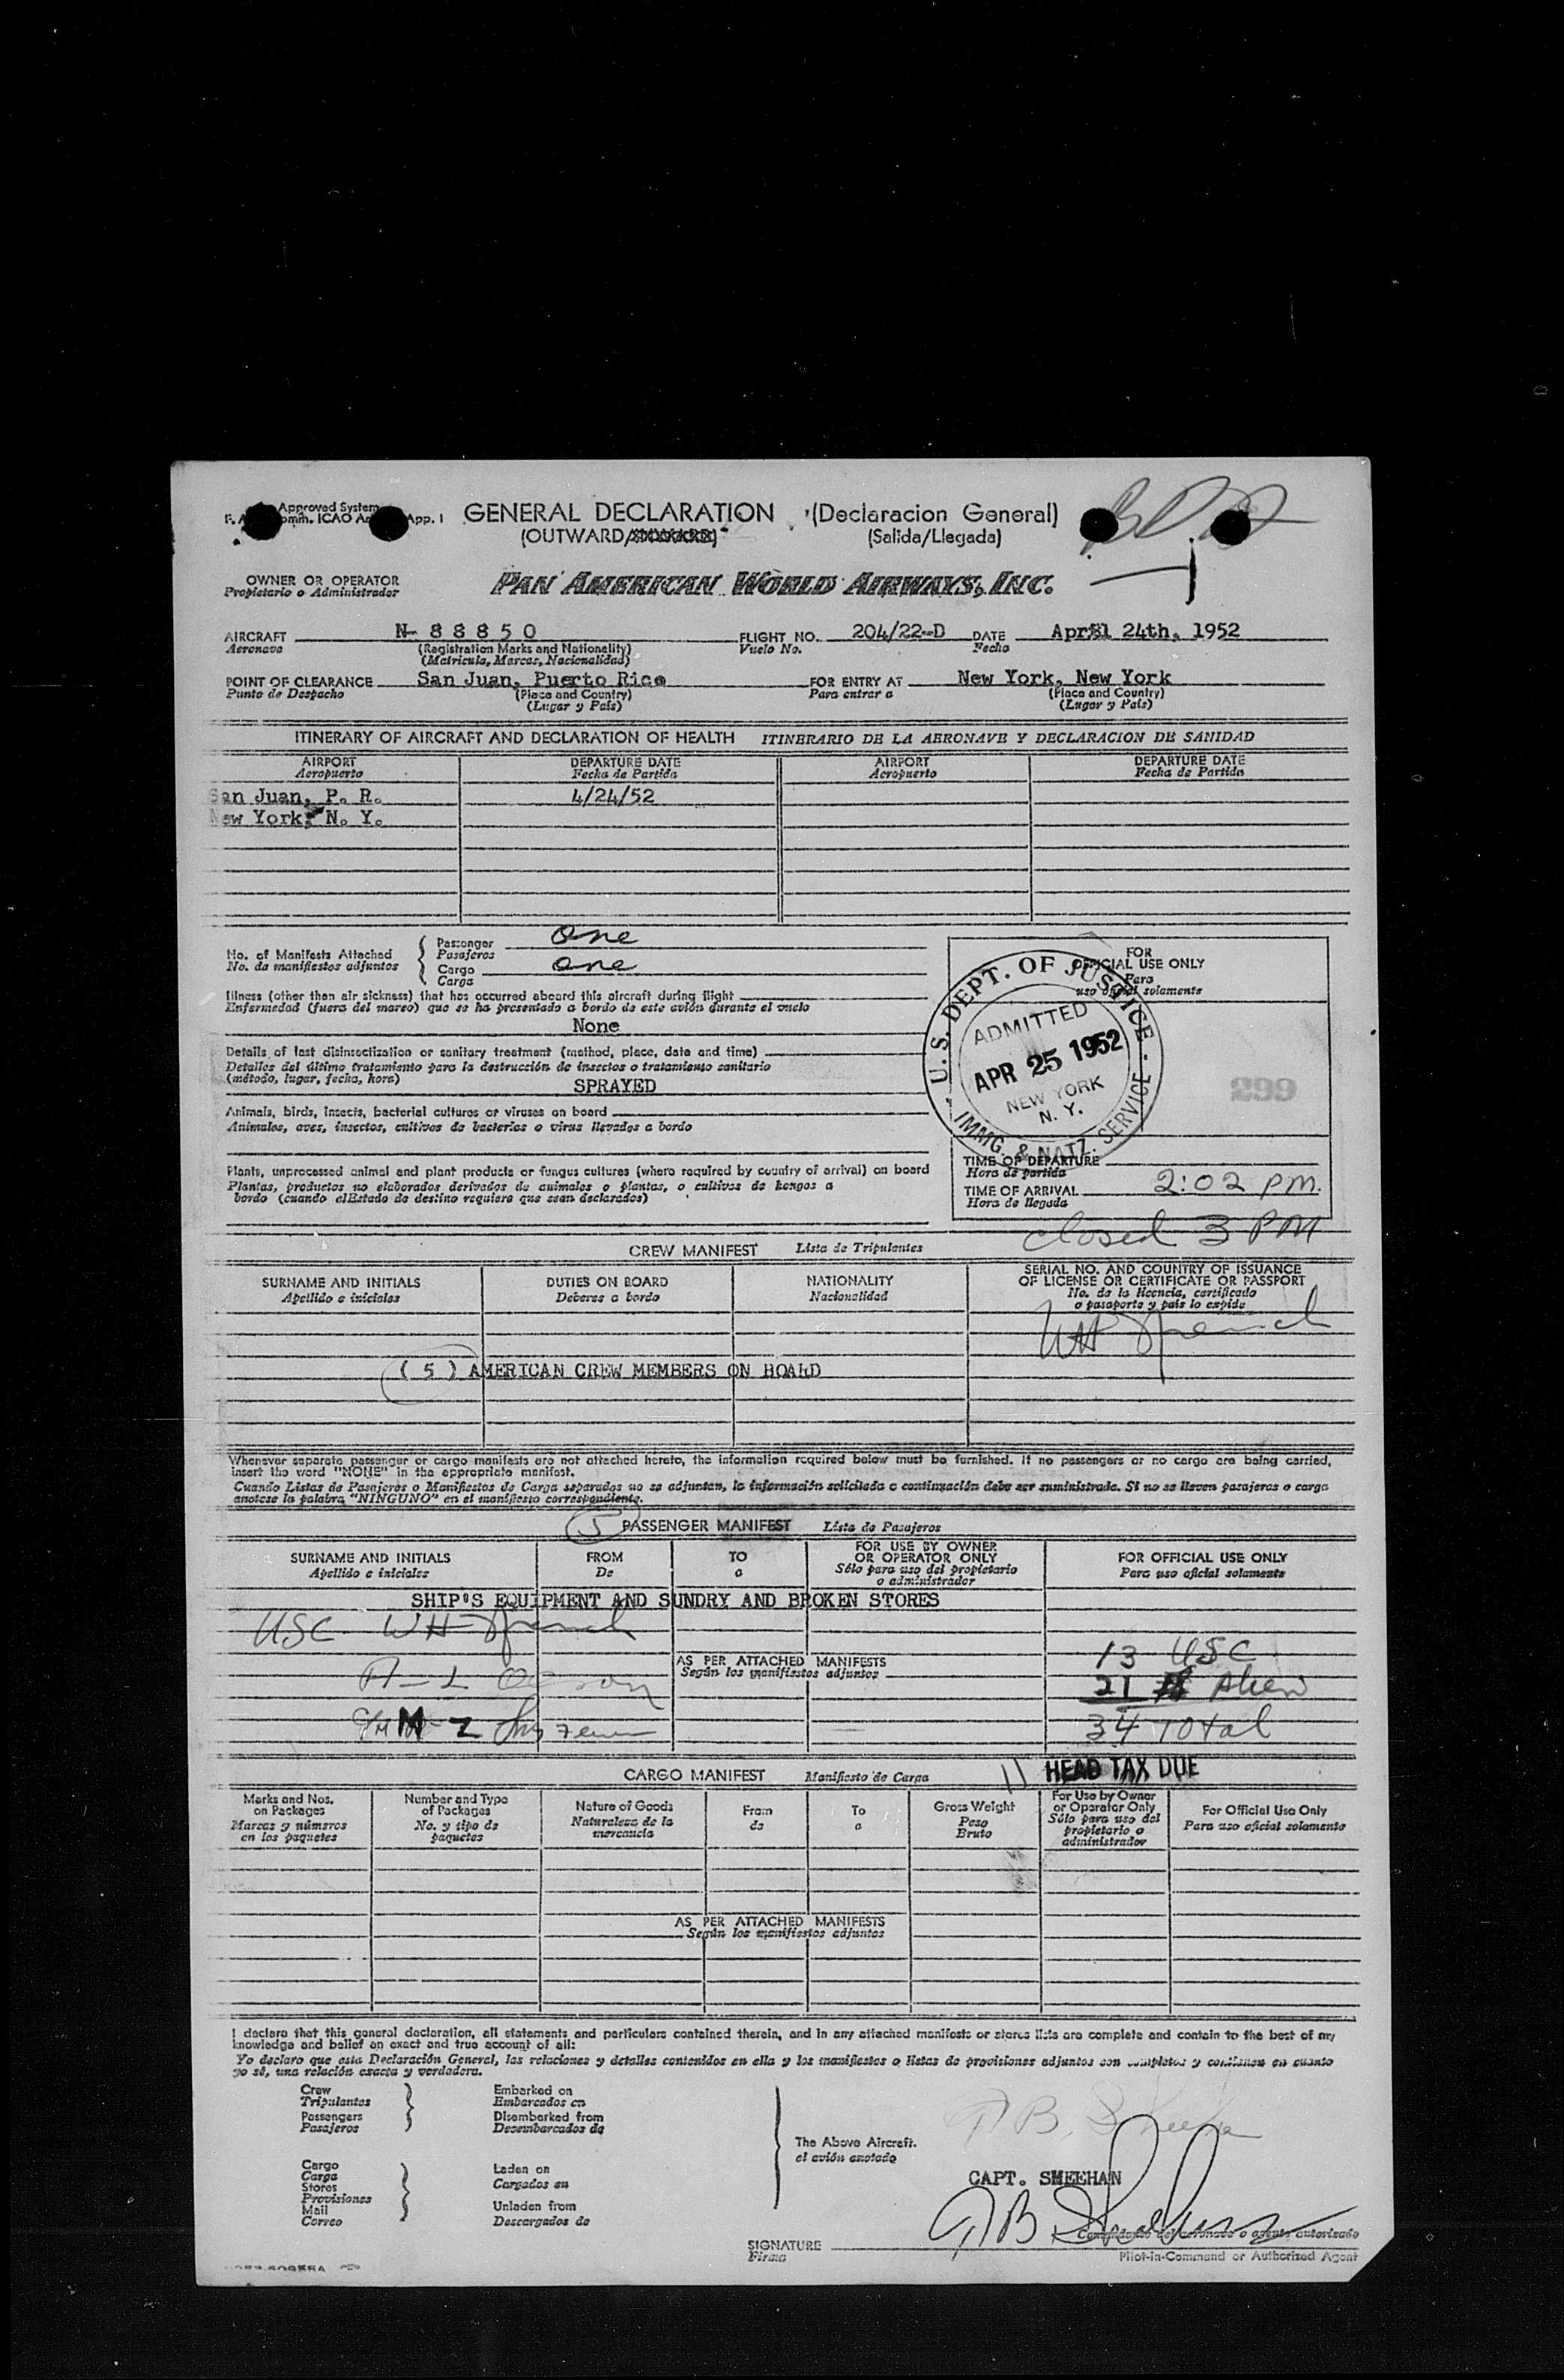 Approved System
GENERAL DECLARATION (Declaracion General)
(OUTWARD/ (Salida/Llegada)
OWNER OR OPERATOR PAN AMERICAN WORLD AIRWAYS, INC.
Propietario o Administrador
AIRCRAFT N-88850 FLIGHT NO. 204/22-D DATE April 24th, 1952
Aeronave (Registration Marks and Nationality) Vuelo No. Fecha
(Matricula, Marcas, Nacionalidad)
POINT OF CLEARANCE San Juan, Puerto Rico FOR ENTRY AT New York, New York
Punto de Despacho (Place and Country) Para entrar a (Place and Country)
(Lugar y País) (Lugar y País)
ITINERARY OF AIRCRAFT AND DECLARATION OF HEALTH ITINERARIO DE LA AERONAVE Y DECLARACION DE SANIDAD
AIRPORT DEPARTURE DATE AIRPORT DEPARTURE DATE
Aeropuerto Fecha de Partida Aeropuerto Fecha de Partida
San Juan, P. R. 4/24/52
New York, N. Y.
No. of Manifests Attached Passenger One
No. de manifiestos adjuntos Pasajeros
Cargo One
Carga
Illness (other than air sickness) that has occurred aboard this aircraft during flight
Enfermedad (fuera del mareo) que se ha presentado a bordo de este avión durante el vuelo
None
Details of last disinsectization or sanitary treatment (method, place, date and time)
Detalles del último tratamiento para la destrucción de insectos o tratamiento sanitario
(método, lugar, fecha, hora)
SPRAYED
Animals, birds, insects, bacterial cultures or viruses on board
Animales, aves, insectos, cultivos de bacterias o virus llevados a bordo
Plants, unprocessed animal and plant products or fungus cultures (where required by country of arrival) on board
Plantas, productos no elaborados derivados de animales o plantas, o cultivos de hongos a
bordo (cuando elEstado de destino requiera que sean declarados)
FOR
OFFICIAL USE ONLY
Para
uso oficial solamente
U.S. DEPT. OF JUSTICE
ADMITTED
APR 25 1952
NEW YORK
N. Y.
IMMG. & NATZ. SERVICE
299
TIME OF DEPARTURE
Hora de partida
TIME OF ARRIVAL 2:02 PM.
Hora de llegada
closed 3 PM
CREW MANIFEST Lista de Tripulantes
SURNAME AND INITIALS DUTIES ON BOARD NATIONALITY SERIAL NO. AND COUNTRY OF ISSUANCE
OF LICENSE OR CERTIFICATE OR PASSPORT
Apellido e iniciales Deberes a bordo Nacionalidad No. de la licencia, certificado
o pasaporte y país lo expide
( 5 ) AMERICAN CREW MEMBERS ON BOARD
Whenever separate passenger or cargo manifests are not attached hereto, the information required below must be furnished. If no passengers or no cargo are being carried,
insert the word "NONE" in the appropriate manifest.
Cuando Listas de Pasajeros o Manifiestos de Carga separados no se adjuntan, la información solicitada a continuación debe ser suministrada. Si no se lleven pasajeros o carga
anotese la palabra "NINGUNO" en el manifiesto correspondiente.
5 PASSENGER MANIFEST Lista de Pasajeros
SURNAME AND INITIALS FROM TO FOR USE BY OWNER
OR OPERATOR ONLY FOR OFFICIAL USE ONLY
Apellido e iniciales De a Sólo para uso del propietario
o administrador Para uso oficial solamente
SHIP'S EQUIPMENT AND SUNDRY AND BROKEN STORES
USC WH
AS PER ATTACHED MANIFESTS 13 USC
Según los manifiestos adjuntos 21 Alien
34 Total
CARGO MANIFEST Manifiesto de Carga 11 HEAD TAX DUE
Marks and Nos.
on Packages Number and Type
of Packages Nature of Goods From To Gross Weight For Use by Owner
or Operator Only For Official Use Only
Marcas y números
en los paquetes No. y tipo de
paquetes Naturaleza de la
mercancía de a Peso
Bruto Sólo para uso del
propietario o
administrador Para uso oficial solamente
AS PER ATTACHED MANIFESTS
Según los manifiestos adjuntos
I declare that this general declaration, all statements and particulars contained therein, and in any attached manifests or stores lists are complete and contain to the best of my
knowledge and belief an exact and true account of all:
Yo declaro que esta Declaración General, las relaciones y detalles contenidos en ella y los manifiestos o listas de provisiones adjuntos son completos y contienen en cuanto
yo sé, una relación exacta y verdadera.
Crew Embarked on
Tripulantes Embarcados en
Passengers Disembarked from
Pasajeros Desembarcados de
The Above Aircraft.
el avión anotado
Cargo Laden on
Carga Cargados en
Stores
Provisiones
Mail Unladen from
Correo Descargados de
CAPT. SHEEHAN
Comandante del aeronave o agente autorizado
SIGNATURE
Firma Pilot-in-Command or Authorized Agent